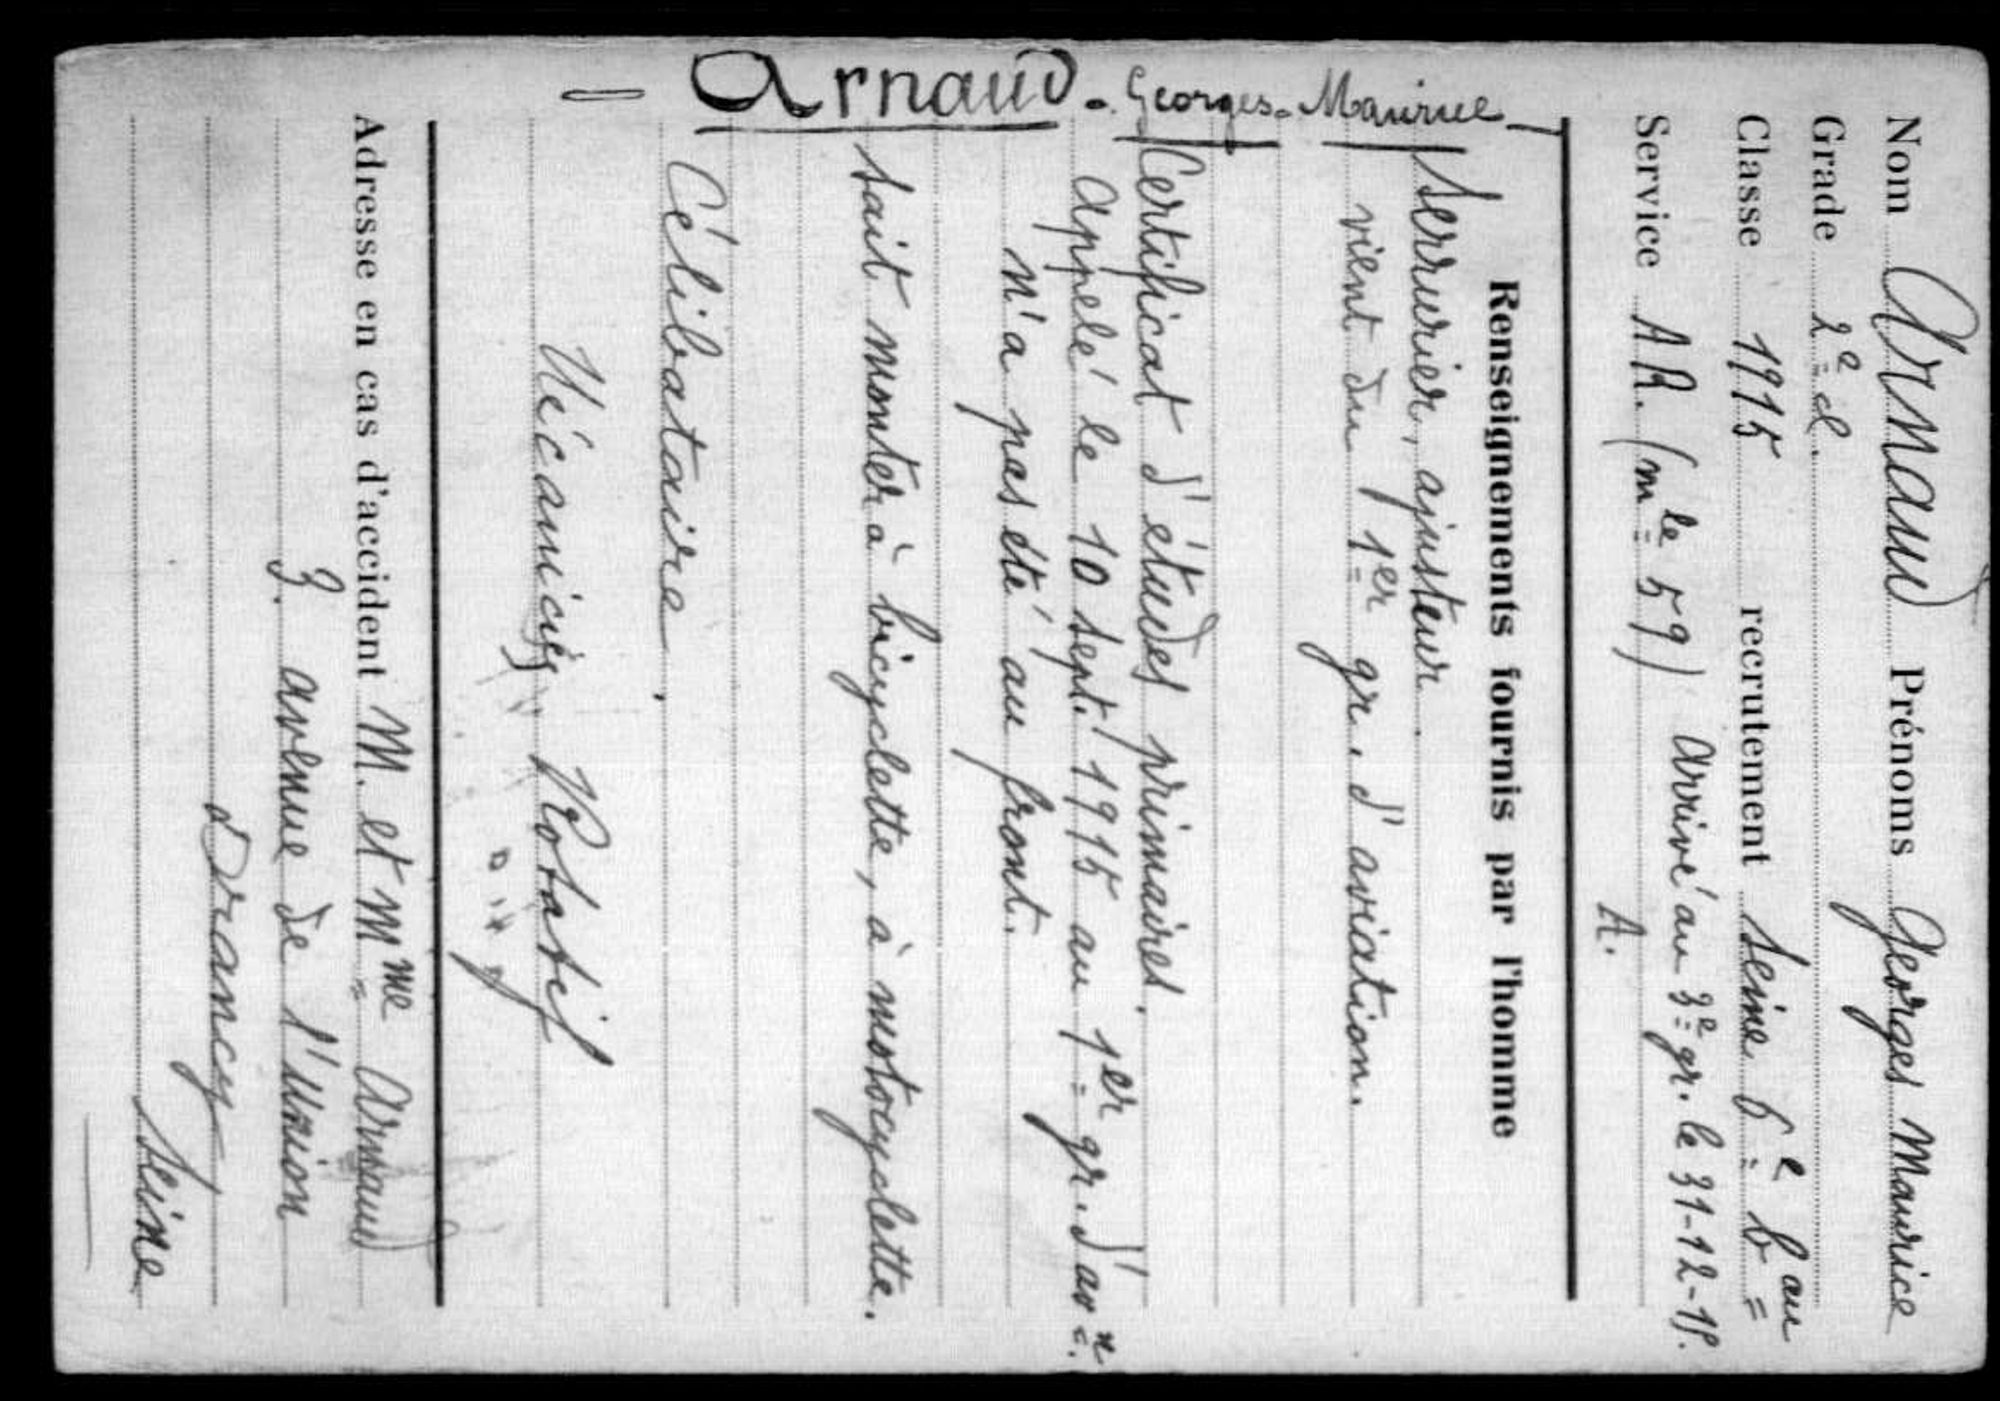 Arnaud - Georges - Maurice
Nom Arnaud Prénoms Georges Maurice
Grade 2e cl.
Classe 1915 recrutement Seine 6e bau
Service A R. (mle 59) arrivé au 3e gr. le 31-12-18.
A.
Renseignements fournis par l'homme
Serrurier, ajusteur.
vient du 1er gr. d'aviation.
Certificat d'études primaires.
Appelé le 10 sept. 1915 au 1er gr. d'avn.
n'a pas été au front.
sait monter à bicyclette, à motocyclette.
Célibataire.
Mécanicien Rotatif
Adresse en cas d'accident M. et Mme Arnaud
3. avenue de l'Union
à Drancy
Seine